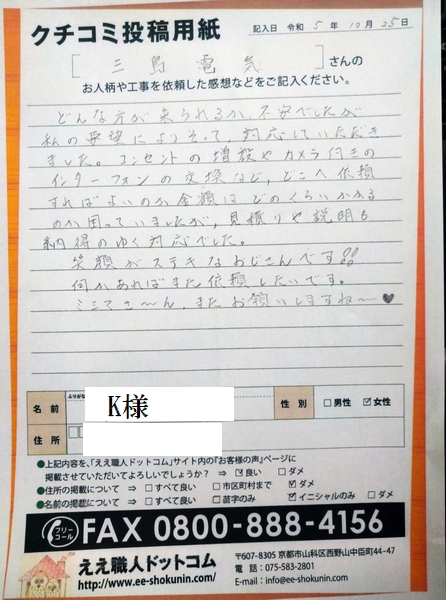 クチコミ投稿用紙
記入日 令和 5 年 10 月 25 日
[ 三島電気 ] さんの
お人柄や工事を依頼した感想などをご記入ください。
どんな方が来られるか、不安でしたが
私の要望によりそって、対応していただき
ました。コンセントの増設やカメラ付きの
インターフォンの交換など、どこへ依頼
すればよいのか金額はどのくらいかかる
のか困っていましたが、見積りや説明も
納得のゆく対応でした。
笑顔がステキなおじさんです!!
何かあればまた依頼したいです。
ミシマさ〜ん、またお願いしますね〜♥
ふりがな
名前 K様 性別 □男性 ☑女性
住所
●上記内容を、「ええ職人ドットコム」サイト内の『お客様の声』ページに
掲載させていただいてよろしいでしょうか? ⇒ ☑良い □ダメ
●住所の掲載について ⇒ □すべて良い □市区町村まで ☑ダメ
●名前の掲載について ⇒ □すべて良い □苗字のみ ☑イニシャルのみ □ダメ
フリーコール FAX 0800-888-4156
ええ職人ドットコム
http://www.ee-shokunin.com/
〒607-8305 京都市山科区西野山中臣町44-47
電話:075-583-2801
E-mail:info@ee-shokunin.com